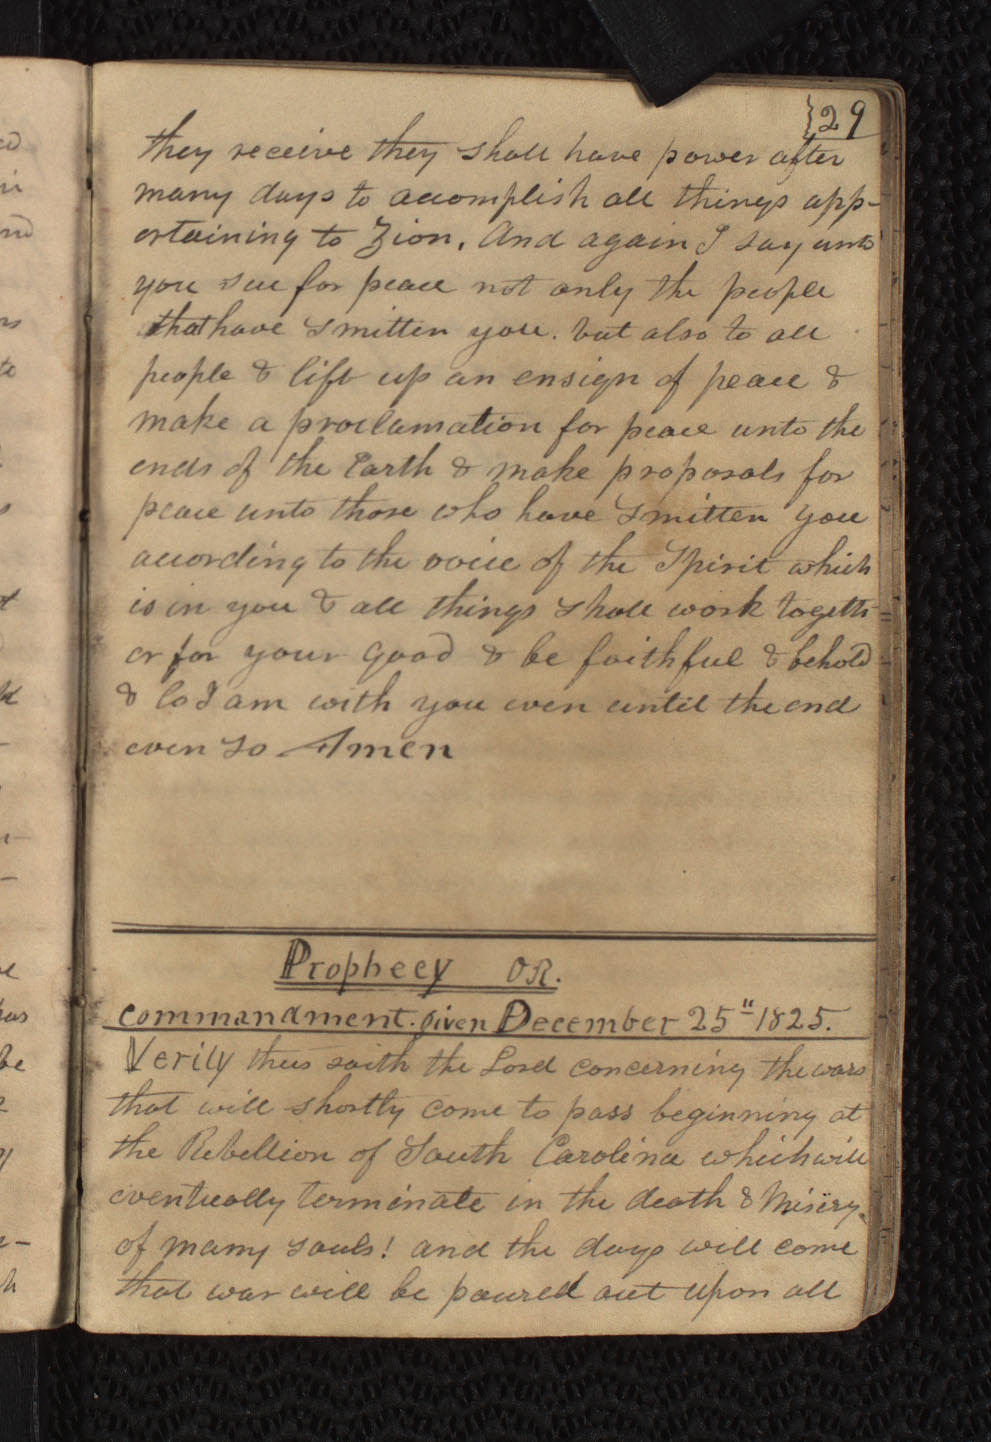 29
they receive they shall have power after
many days to accomplish all things app-
ertaining to Zion. And again I say unto
you sue for peace not only the people
that have smitten you. but also to all
people & lift up an ensign of peace &
make a proclamation for peace unto the
ends of the Earth & make proposals for
peace unto those who have smitten you
according to the voice of the Spirit which
is in you & all things shall work togeth-
er for your good & be faithful & behold
& lo I am with you even until the end
even so Amen
Prophecy OR.
commandment. given December 25" 1825.
Verily thus saith the Lord concerning the wars
that will shortly come to pass beginning at
the Rebellion of South Carolina which will
eventually terminate in the death & Misery
of many souls! and the days will come
that war will be poured out upon all